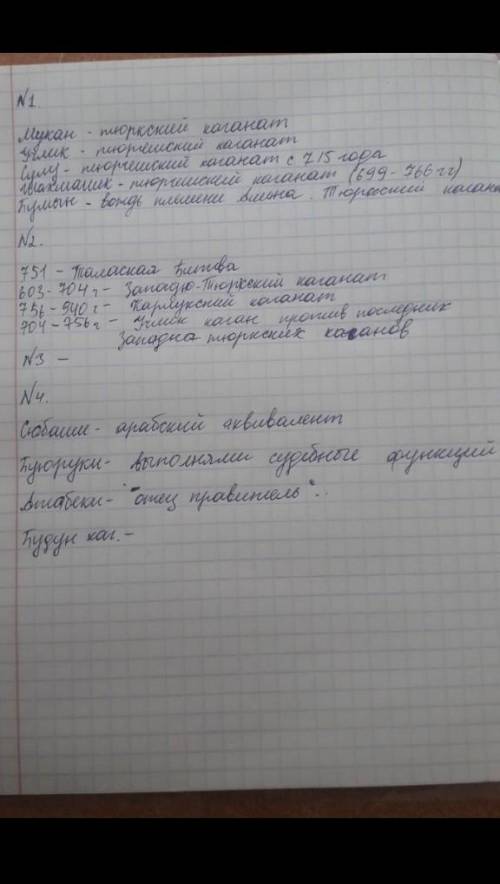 №1.
Мукан - тюркский каганат
Учлик - тюргешский каганат
Сулу - тюргешский каганат с 715 года
тюргешский каганат (699-766 гг)
Бумын - вождь племени Ашина. Тюркский кагана
№2.
751 - Талаская битва
603-704 г - Западно-Тюркский каганат
756-940 г - Карлукский каганат
704-756 г - Учлик каган против последних
Западна тюркских каганов
№3 -
№4.
Сюбаши - арабский эквивалент
Буюруки - выполнями судебные функций
Атабеки - "отец правитель".
Будун каг. -